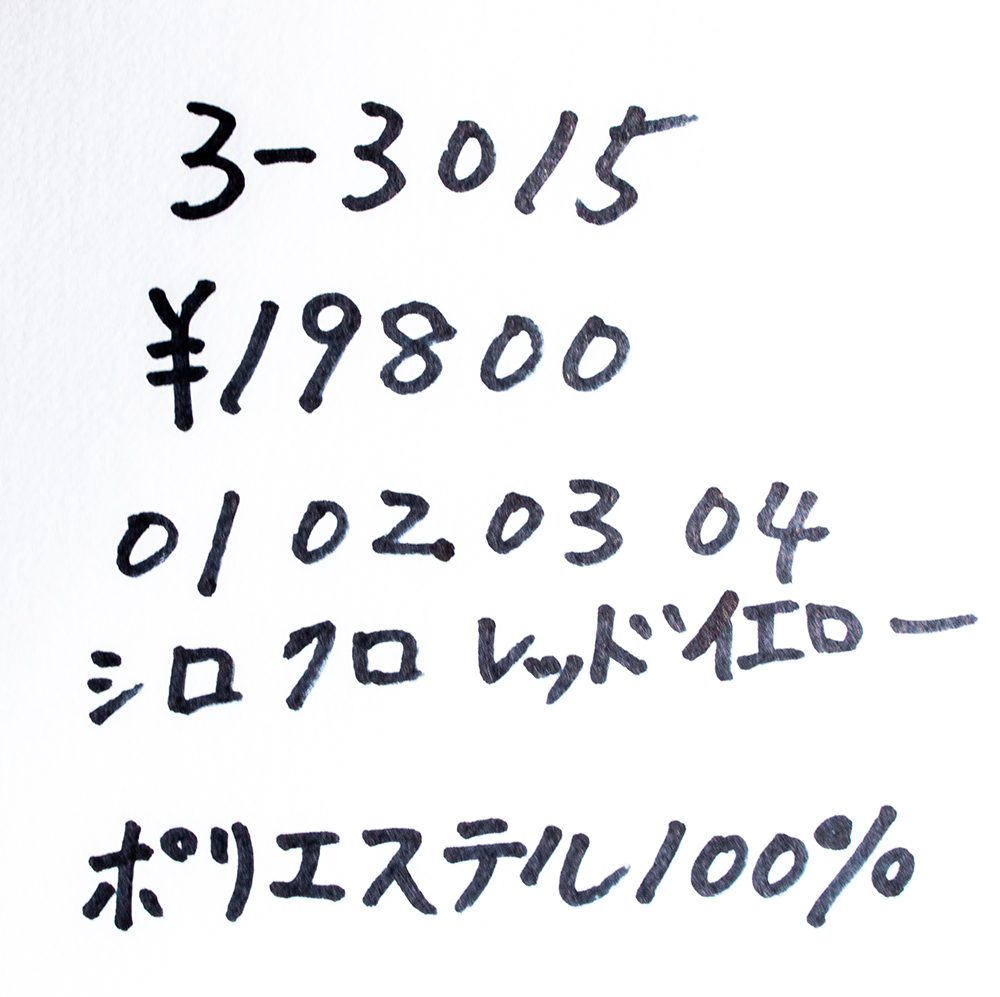 3-3015
¥19800
01 02 03 04
シロ クロ レッド イエロー
ポリエステル100%